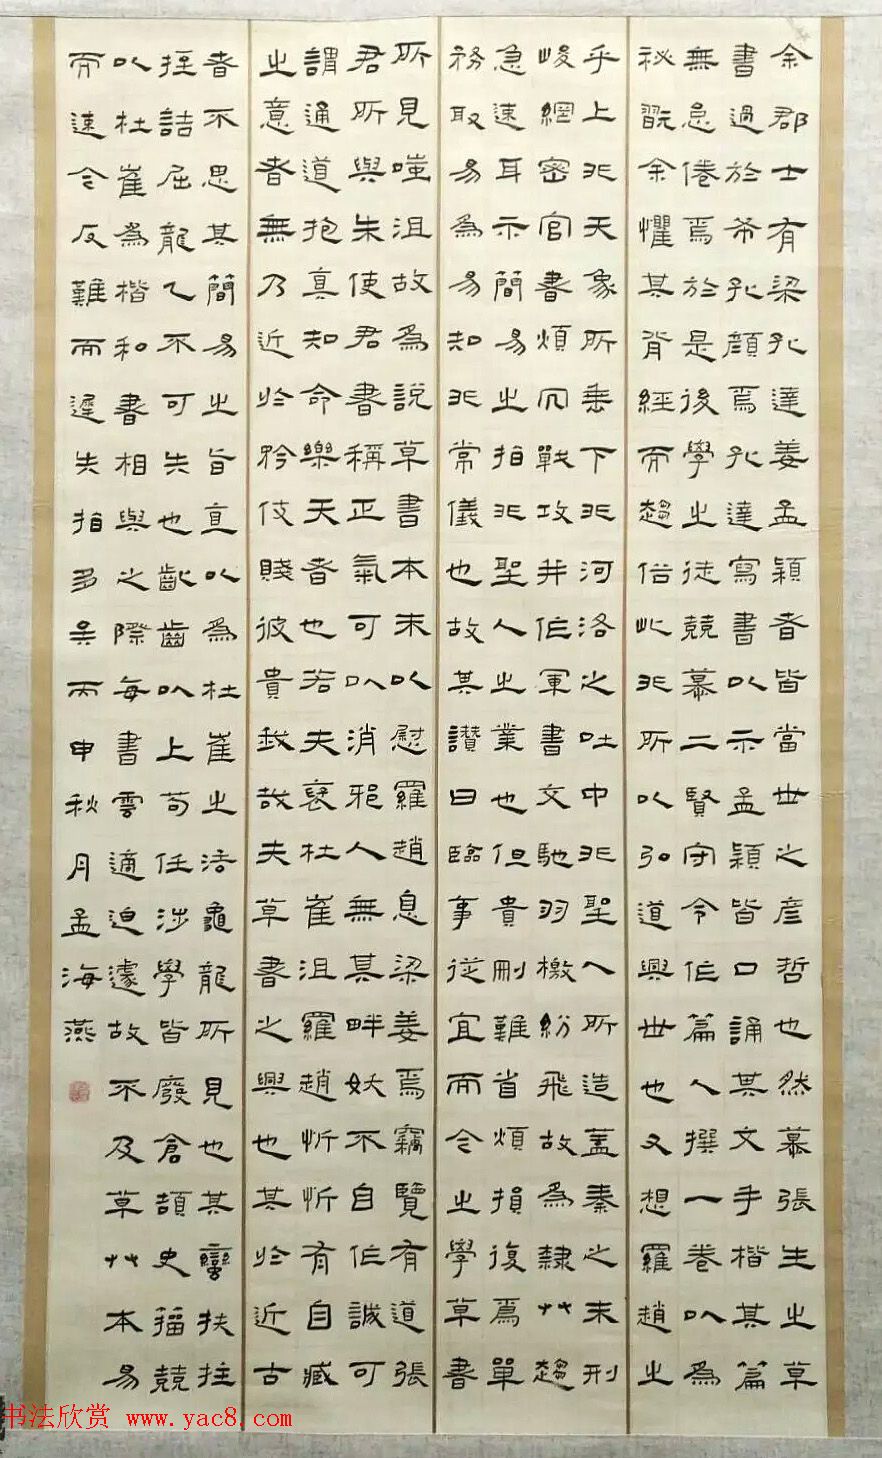 余郡士有梁孔達姜孟穎者皆當世之彦哲也然慕張生之草
書過於希孔顏焉孔達寫書以示孟穎皆口誦其文手楷其篇
無怠倦焉於是後學之徒競慕二賢守令作篇人撰一卷以為
秘翫余懼其背經而趨俗此非所以弘道興世也又想羅趙之
乎上非天象所垂下非河洛之吐中非聖人所造蓋秦之末刑
峻網密官書煩冗戰攻并作軍書交馳羽檄紛飛故為隸艸趨
急速耳示簡易之指非聖人之業也但貴刪難省煩損復焉單
務取易為易知非常儀也故其讚曰臨事從宜而今之學草書
所見嗤沮故為說草書本末以慰羅趙息梁姜焉竊覽有道張
君所與朱使君書稱正氣可以消邪人無其畔妖不自作誠可
謂通道抱真知命樂天者也若夫褒杜崔沮羅趙忻忻有自臧
之意者無乃近於矜伎賤彼貴我哉夫草書之興也其於近古
者不思其簡易之旨直以為杜崔之法龜龍所見也其蠻扶拄
挃詰屈龍乙不可失也齔齒以上苟任涉學皆廢倉頡史籀競
以杜崔為楷和書相與之際每書雲適迫遽故不及草艸本易
而速今反難而遲失指多矣丙申秋月孟海燕
书法欣赏 www.yac8.com